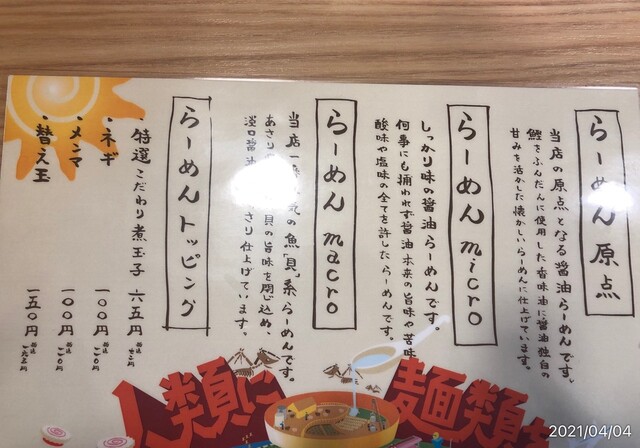 らーめん 原点
当店の原点となる醤油らーめんです。
鰹をふんだんに使用した香味油に醤油独自の
甘みを活かした懐かしいらーめんに仕上げています。
らーめん micro
しっかり味の醤油らーめんです。
何事にも捕われず醤油本来の旨味や苦味
酸味や塩味の全てを許したらーめんです。
らーめん macro
当店一 の魚「貝」系らーめんです。
あさり 貝の旨味を閉じ込め、
淡口醤油 さり仕上げています。
らーめん トッピング
・特選こだわり煮玉子 六五円
・ネギ 一〇〇円
・メンマ 一〇〇円
・替え玉 一五〇円
人類に
麺類を
2021/04/04